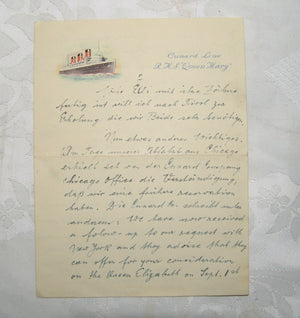 Cunard Line
R.M.S. "Queen Mary"
wie Ell. mit ihr
fertig ist will ich nach Tirol zur
Erholung die wir Beide sehr benötigen.
Nun etwas anderes wichtiges.
Am Tage unserer Abfahrt aus Chicago
erhielt ich von der Cunard Company
Chicago Office die Verständigung,
daß wir eine frühere reservation
haben. Die Cunard Co. schreibt unter
anderem: We have now received
a follow-up to our request with
New York and they advise that they
can offer for your consideration
on the Queen Elizabeth on Sept. 1st